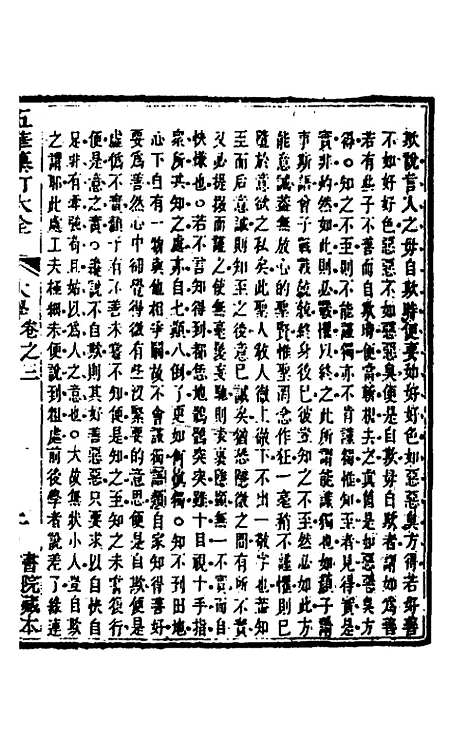 欺說言人之毋自欺時便要如好好色如惡惡臭方得若好善
不如好好色惡惡不如惡惡臭便是自欺毋自欺者謂如為善
若有些子不善而自欺時便當斬根去之真箇是如惡惡臭方
得○知之不至則不能謹獨亦不肯謹獨惟知至者見得實是
實非灼然如此而必戰懼以終之此所謂能謹獨也如顏子請
事斯語曾子戰戰兢兢終身後已彼豈知之不至然必如此方
能意誠蓋無放心的聖賢惟聖罔念作狂一毫稍不謹則已
隨於意欲之私矣此聖人教人徹上徹下不出一敬字也蓋知
至而后意誠則知至之後意已誠矣猶恐隱微之間有所不實
又必提掇而謹之使無毫髮妄馳則表裏隱顯無一不實而自
快慊也○若不言知得到都恁地鶻鶻突突雖十目視十手指
眾所共知之處亦自七顛八倒了更如何慎獨○知不到田地
心下自有一物與他相爭鬬故不會謹獨謂自家知得善好
要為善然心中卻覺得微有些沒緊要的意思便是自欺便是
虛偽不實顏子有不善未嘗不知便是知之至知之未嘗復行
便是意之實○誰說不自欺則其好善惡惡只要求以自快自
足非有牽強苟且姑以為人之意也○大故無狀小人豈自欺
之謂耶此處工夫極細未便說到粗處前後學者說差了緣連
五華纂訂大全
大學卷之三
書院藏本